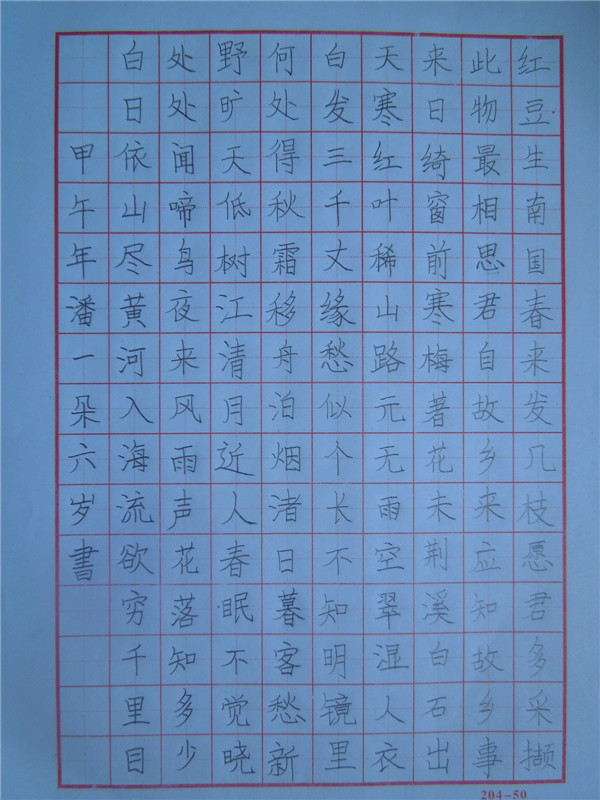 红豆生南国春来发几枝愿君多采撷
此物最相思君自故乡来应知故乡事
来日绮窗前寒梅著花未荆溪白石出
天寒红叶稀山路元无雨空翠湿人衣
白发三千丈缘愁似个长不知明镜里
何处得秋霜移舟泊烟渚日暮客愁新
野旷天低树江清月近人春眠不觉晓
处处闻啼鸟夜来风雨声花落知多少
白日依山尽黄河入海流欲穷千里目
甲午年潘一朵六岁書
204-50